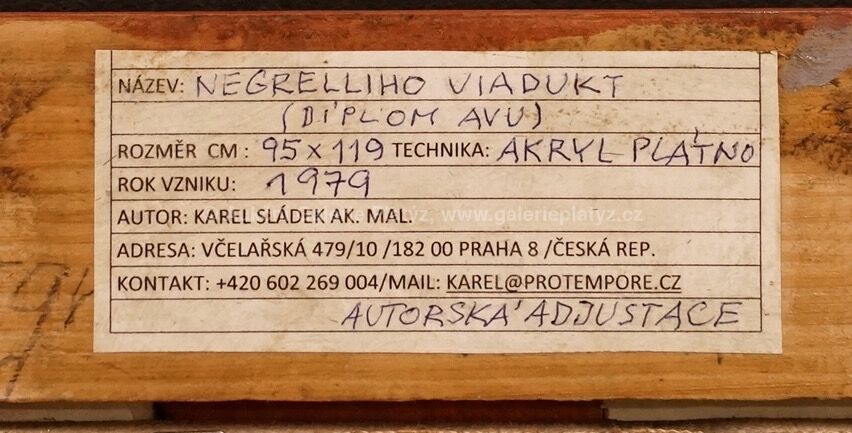 NÁZEV: NEGRELLIHO VIADUKT
(DIPLOM AVU)
ROZMĚR CM: 95x119 TECHNIKA: AKRYL PLÁTNO
ROK VZNIKU: 1979
AUTOR: KAREL SLÁDEK AK. MAL.
ADRESA: VČELAŘSKÁ 479/10 /182 00 PRAHA 8 /ČESKÁ REP.
KONTAKT: +420 602 269 004/MAIL: KAREL@PROTEMPORE.CZ
AUTORSKÁ ADJUSTACE
www.galerieplatyz.cz